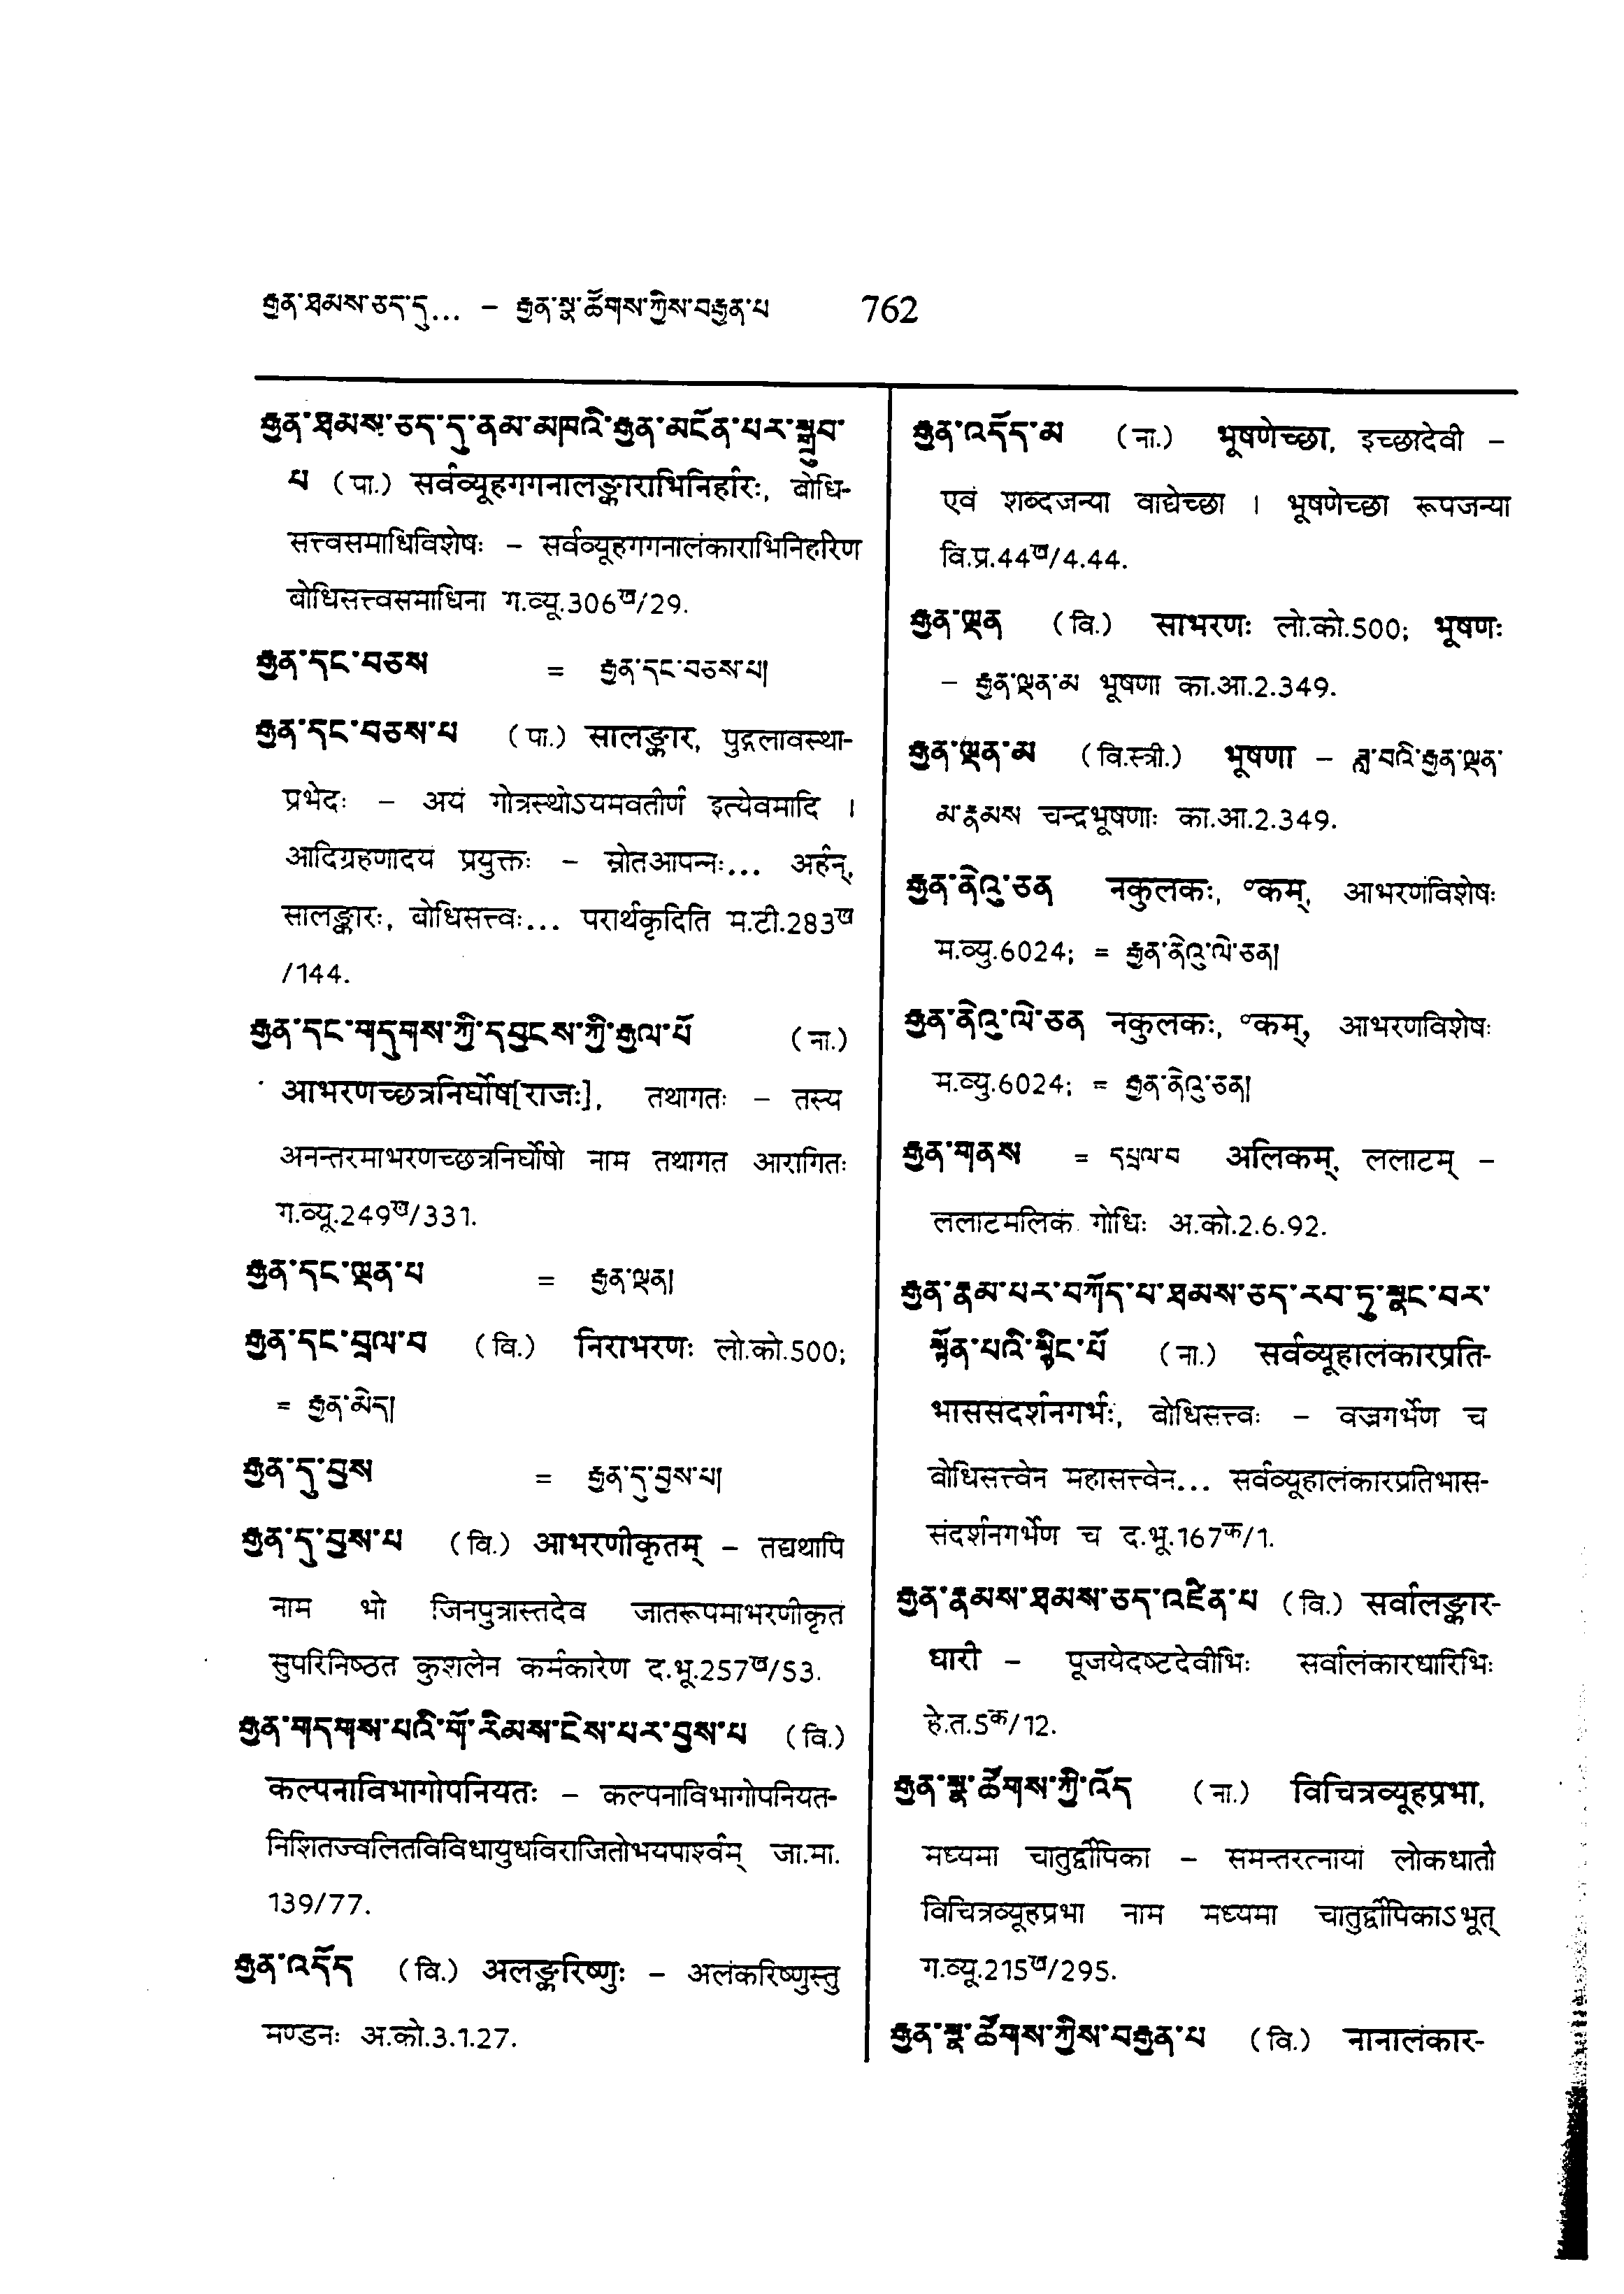 རྒྱན་ཐམས་ཅད་དུ... – རྒྱན་སྣ་ཚོགས་ཀྱིས་བརྒྱན་པ 762
རྒྱན་ཐམས་ཅད་དུ་ནམ་མཁའི་རྒྱན་མངོན་པར་སྒྲུབ་
པ (पा.) सर्वव्यूहगगनालङ्काराभिनिर्हारः, बोधि-
सत्त्वसमाधिविशेषः – सर्वव्यूहगगनालंकाराभिनिर्हारेण
बोधिसत्त्वसमाधिना ग.व्यू.306ख/29.
རྒྱན་དང་བཅས = རྒྱན་དང་བཅས་པ།
རྒྱན་དང་བཅས་པ (पा.) सालङ्कार, पुद्गलावस्था-
प्रभेदः – अयं गोत्रस्थोऽयमवतीर्ण इत्येवमादि ।
आदिग्रहणादयं प्रयुक्तः – स्रोतआपन्नः... अर्हन्,
सालङ्कारः, बोधिसत्त्वः... परार्थकृदिति म.टी.283ख
/144.
རྒྱན་དང་གདུགས་ཀྱི་དབྱངས་ཀྱི་རྒྱལ་པོ (ना.)
आभरणच्छत्रनिर्घोष[राजः], तथागतः – तस्य
अनन्तरमाभरणच्छत्रनिर्घोषो नाम तथागत आरागितः
ग.व्यू.249ख/331.
རྒྱན་དང་ལྡན་པ = རྒྱན་ལྡན།
རྒྱན་དང་བྲལ་བ (वि.) निराभरणः लो.को.500;
= རྒྱན་མེད།
རྒྱན་དུ་བྱས = རྒྱན་དུ་བྱས་པ།
རྒྱན་དུ་བྱས་པ (वि.) आभरणीकृतम् – तद्यथापि
नाम भो जिनपुत्रास्तदेव जातरूपमाभरणीकृतं
सुपरिनिष्ठत कुशलेन कर्मकारेण द.भू.257ख/53.
རྒྱན་གདགས་པའི་གོ་རིམས་ངེས་པར་བྱས་པ (वि.)
कल्पनाविभागोपनियतः – कल्पनाविभागोपनियत-
निशितज्वलितविविधायुधविराजितोभयपार्श्वम् जा.मा.
139/77.
རྒྱན་འདོད (वि.) अलङ्करिष्णुः – अलंकरिष्णुस्तु
मण्डनः अ.को.3.1.27.
རྒྱན་འདོད་མ (ना.) भूषणेच्छा, इच्छादेवी –
एवं शब्दजन्या वाद्येच्छा । भूषणेच्छा रूपजन्या
वि.प्र.44ख/4.44.
རྒྱན་ལྡན (वि.) साभरणः लो.को.500; भूषणः
– རྒྱན་ལྡན་མ भूषणा का.आ.2.349.
རྒྱན་ལྡན་མ (वि.स्त्री.) भूषणा – ཟླ་བའི་རྒྱན་ལྡན་
མ་རྣམས चन्द्रभूषणाः का.आ.2.349.
རྒྱན་ནེའུ་ཅན नकुलकः, ॰कम्, आभरणविशेषः
म.व्यु.6024; = རྒྱན་ནེའུ་ལེ་ཅན།
རྒྱན་ནེའུ་ལེ་ཅན नकुलकः, ॰कम्, आभरणविशेषः
म.व्यु.6024; = རྒྱན་ནེའུ་ཅན།
རྒྱན་གནས = དཔྲལ་བ अलिकम्, ललाटम् –
ललाटमलिकं गोधिः अ.को.2.6.92.
རྒྱན་རྣམ་པར་བཀོད་པ་ཐམས་ཅད་རབ་ཏུ་སྣང་བར་
སྟོན་པའི་སྙིང་པོ (ना.) सर्वव्यूहालंकारप्रति-
भाससंदर्शनगर्भः, बोधिसत्त्वः – वज्रगर्भेण च
बोधिसत्त्वेन महासत्त्वेन... सर्वव्यूहालंकारप्रतिभास-
संदर्शनगर्भेण च द.भू.167क/1.
རྒྱན་རྣམས་ཐམས་ཅད་འཛིན་པ (वि.) सर्वालङ्कार-
धारी – पूजयेदष्टदेवीभिः सर्वालंकारधारिभिः
हे.त.5क/12.
རྒྱན་སྣ་ཚོགས་ཀྱི་འོད (ना.) विचित्रव्यूहप्रभा,
मध्यमा चातुर्द्वीपिका – समन्तरत्नायां लोकधातौ
विचित्रव्यूहप्रभा नाम मध्यमा चातुर्द्वीपिकाऽभूत्
ग.व्यू.215ख/295.
རྒྱན་སྣ་ཚོགས་ཀྱིས་བརྒྱན་པ (वि.) नानालंकार-